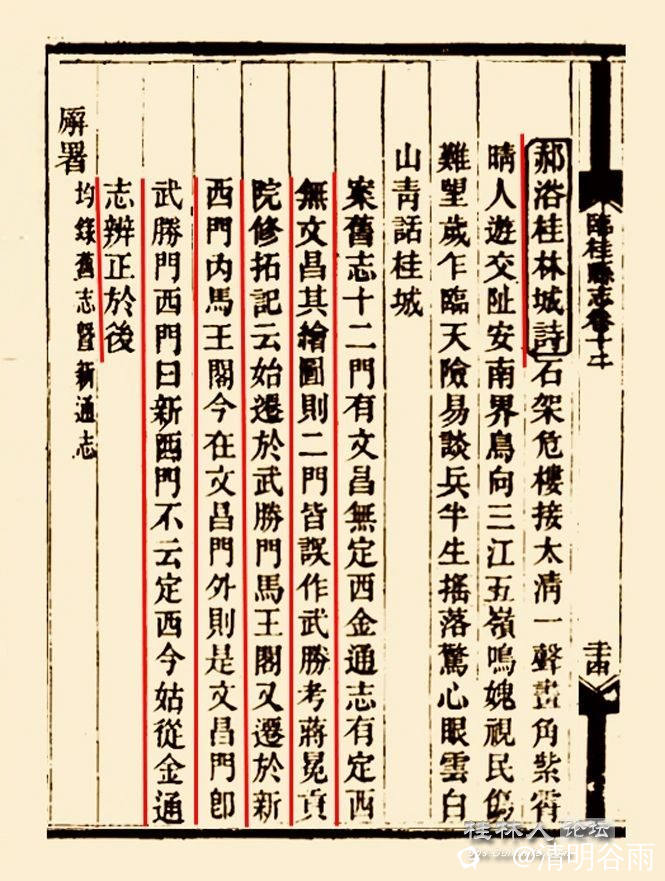 臨桂縣志卷十
郝浴桂林城詩石架危樓接太清一聲畫角紫霄
晴人遊交阯安南界鳥向三江五嶺鳴媿視民傷
難望歲乍臨天險易談兵半生搖落驚心眼雲白
山青話桂城
案舊志十二門有文昌無定西金通志有定西
無文昌其繪圖則二門皆誤作武勝考蔣冕貢
院修拓記云始遷於武勝門馬王閣又遷於新
西門內馬王閣今在文昌門外則是文昌門卽
武勝門西門曰新西門不云定西今姑從金通
志辨正於後
廨署 均錄舊志暨新通志
桂林人论坛
@清明谷雨